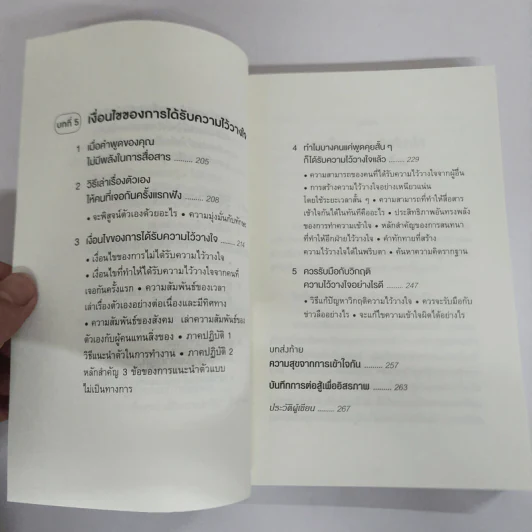 บทที่ 5 เงื่อนไขของการได้รับความไว้วางใจ
1 เมื่อคำพูดของคุณ
ไม่มีพลังในการสื่อสาร ........ 205
2 วิธีเล่าเรื่องตัวเอง
ให้คนที่เจอกันครั้งแรกฟัง ........ 208
• จะพิสูจน์ตัวเองด้วยอะไร • ความมุ่งมั่นกับทักษะ
3 เงื่อนไขของการได้รับความไว้วางใจ ........ 214
• เงื่อนไขของการไม่ได้รับความไว้วางใจ
• เงื่อนไขที่ทำให้ได้รับความไว้วางใจจากคนที่
เจอกันครั้งแรก • ความสัมพันธ์ของเวลา
เล่าเรื่องตัวเองอย่างต่อเนื่องและมีทิศทาง
• ความสัมพันธ์ของสังคม เล่าความสัมพันธ์ของ
ตัวเองกับผู้คนแทนสิ่งของ • ภาคปฏิบัติ 1
วิธีแนะนำตัวในการทำงาน • ภาคปฏิบัติ 2
หลักสำคัญ 3 ข้อของการแนะนำตัวแบบ
ไม่เป็นทางการ
4 ทำไมบางคนแค่พูดคุยสั้น ๆ
ก็ได้รับความไว้วางใจแล้ว ........ 229
• ความสามารถของคนที่ได้รับความไว้วางใจจากผู้อื่น
• การสร้างความไว้วางใจอย่างเหนียวแน่น
โดยใช้ระยะเวลาสั้น ๆ • ความสามารถที่ทำให้สื่อสาร
เข้าใจกันได้ในทันทีคืออะไร • ประสิทธิภาพอันทรงพลัง
ของการทำความเข้าใจ • หลักสำคัญของการสนทนา
ที่ทำให้อีกฝ่ายไว้วางใจ • คำทักทายที่สร้าง
ความไว้วางใจได้ในพริบตา • ค้นหาความคิดรากฐาน
5 ควรรับมือกับวิกฤติ
ความไว้วางใจอย่างไรดี ........ 247
• วิธีแก้ปัญหาวิกฤติความไว้วางใจ • ควรจะรับมือกับ
ข่าวลืออย่างไร • จะแก้ไขความเข้าใจผิดได้อย่างไร
บทส่งท้าย
ความสุขจากการเข้าใจกัน ........ 257
บันทึกการต่อสู้เพื่ออิสรภาพ ........ 263
ประวัติผู้เขียน ........ 267